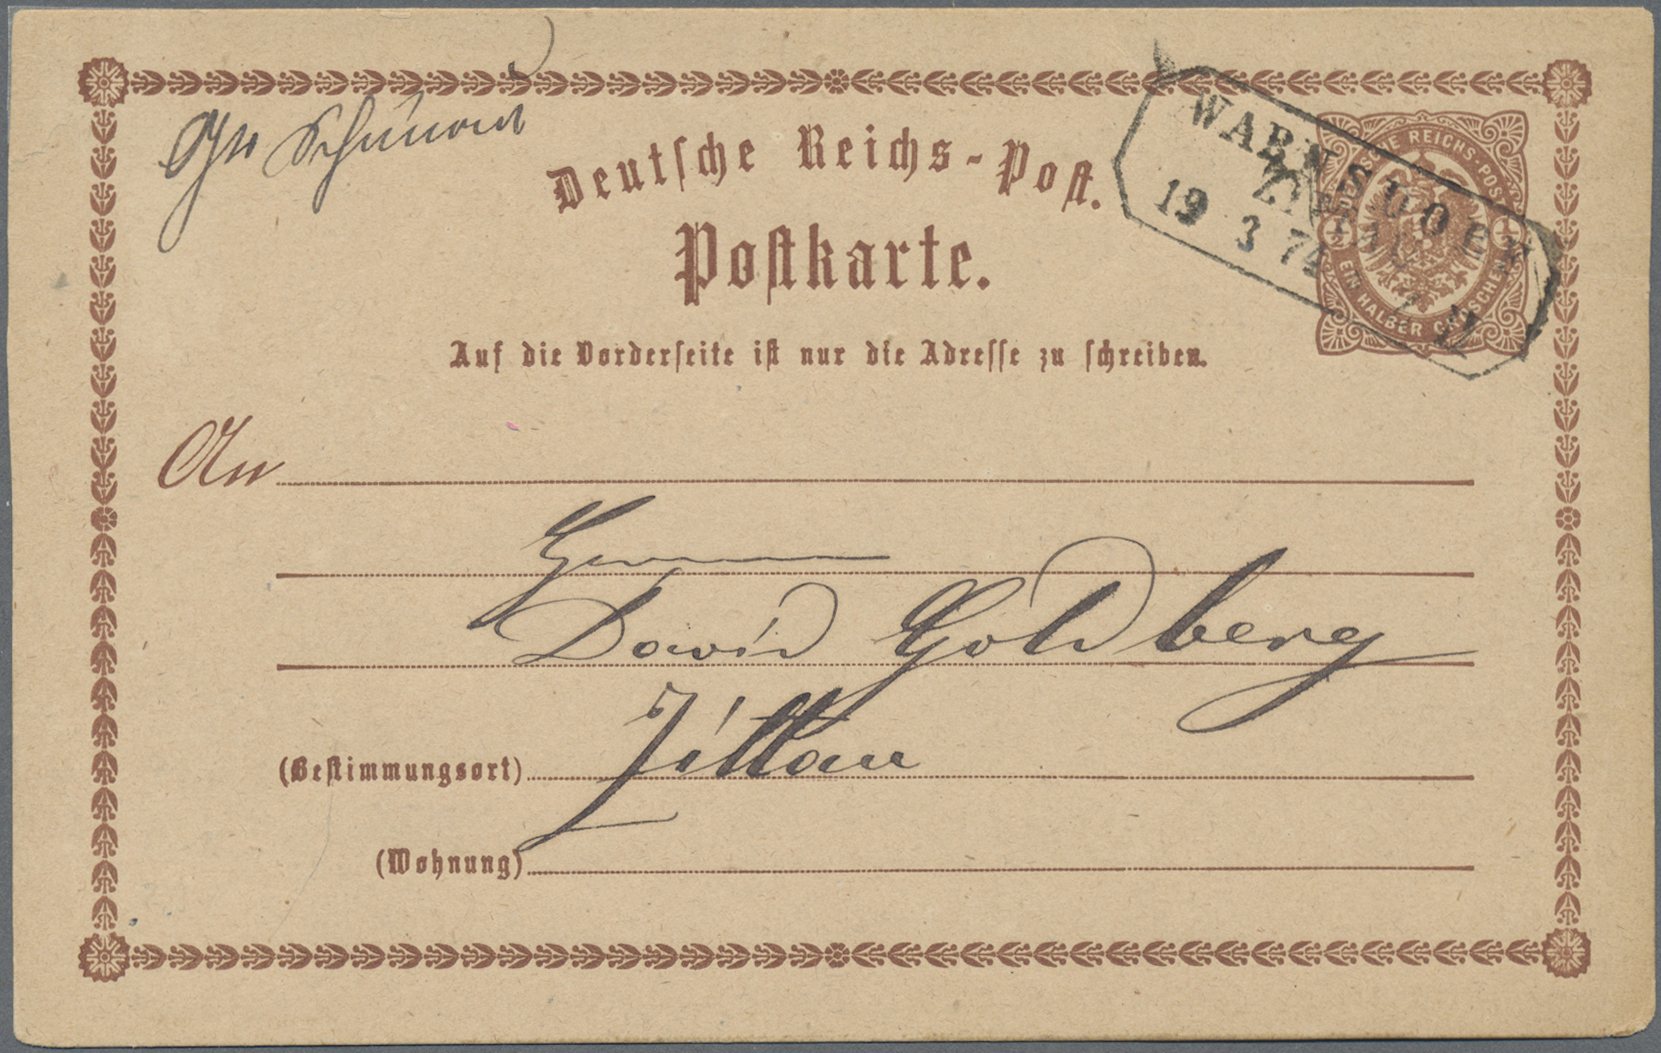 Deutsche Reichs-Post.
Postkarte.
WARNSDORF
ZITTAU
19 3 74 II
DEUTSCHE REICHS-POST
½ ½
EIN HALBER GROSCHEN
Auf die Vorderseite ist nur die Adresse zu schreiben.
An
Herrn
David Goldberg
(Bestimmungsort) Zittau
(Wohnung)